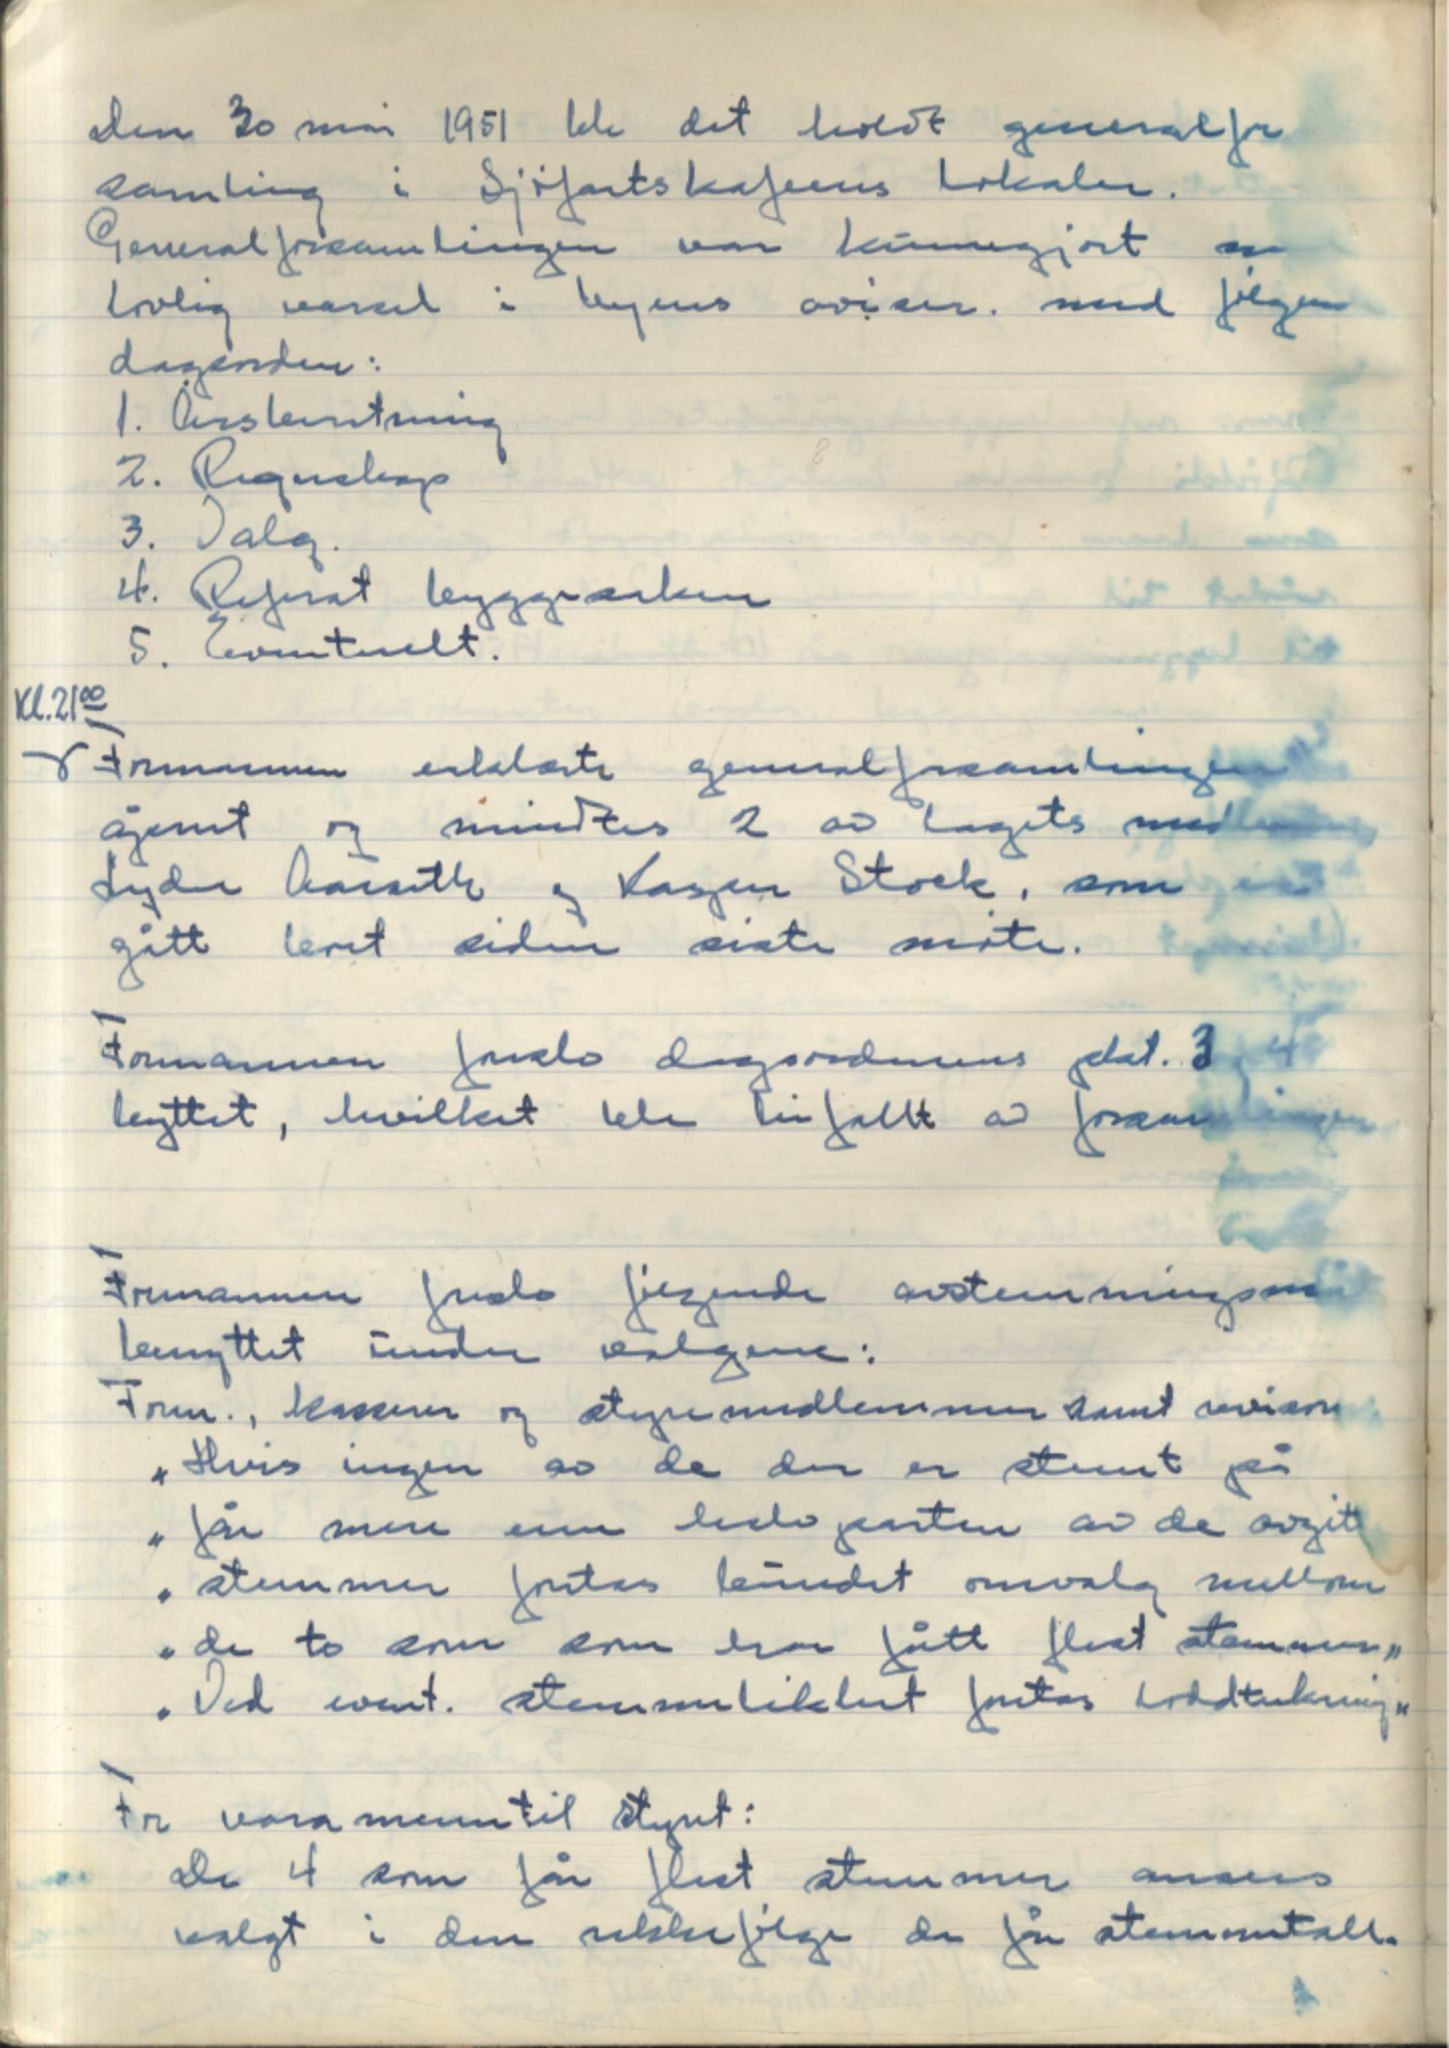 Den 30 mai 1951 ble det holdt generalfor
samling i Sjøfartskafeens lokaler.
Generalforsamlingen var kunngjort
lovlig varsel i byens aviser. med følgen
dagsorden:
1. Årsberetning
2. Regnskap
3. Valg.
4. Referat byggesaken
5. Eventuelt.
Kl. 21.00
Formannen erklærte generalforsamlingen
åpent og mindtes 2 av lagets medlem
Lyder og Kasper Stock, som
gått bort siden siste møte.
Formannen foreslo dagsordenens pkt. 3 og 4
byttet, hvilket ble bifallt av forsamlingen
Formannen foreslo følgende avstemningsmå
benyttet under valgene:
Form., kasserer og styremedlemmer samt revisor
„Hvis ingen av de der er stemt på
„får mere enn halvparten av de avgitt
„stemmer foretas bundet omvalg mellom
„de to som som har fått flest stemmer„
„Ved event. stemmelikhet foretas loddtrekning„
For varamenn til styret:
De 4 som får flest stemmer ansees
valgt i den rekkefølge de får stemmetall.